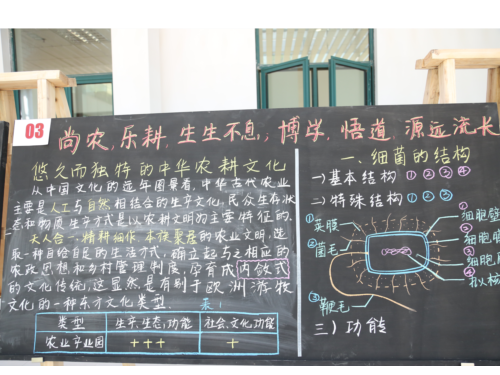 03
尚农,乐耕,生生不息;博学,悟道,源远流长
悠久而独特的中华农耕文化
从中国文化的远年图景看,中华古代农业
主要是人工与自然相结合的生产文化,民众生存状
态和物质生产方式是以农耕文明为主要特征的.
天人合一、精耕细作、本族聚居的农业文明,选
取一种自给自足的生活方式,确立起与之相应的
农政思想和乡村管理制度,孕育成内敛式
的文化传统,这显然是有别于欧洲游牧
文化的一种东方文化类型.
类型 生产、生态、功能 社会、文化功能
农业产业园 +++ +
一、细菌的结构
一)基本结构 ①②③④
二)特殊结构 ①②③
①荚膜
②菌毛
③鞭毛
细胞
细胞
细胞
拟核
三)功能